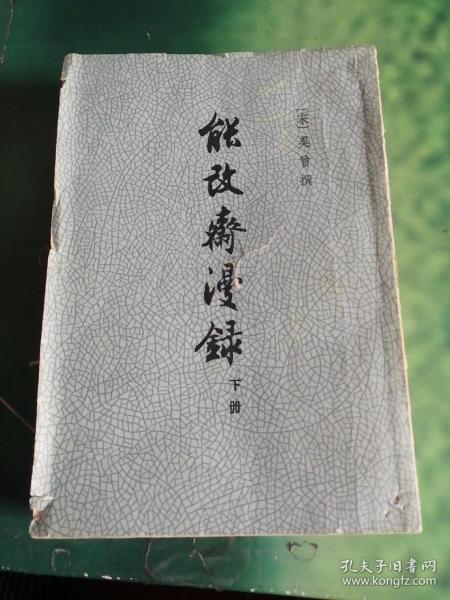 [宋]吳曾撰
能改齋漫録
下册
孔夫子旧书网
www.kongfz.com